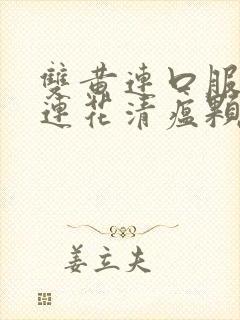 雙黄連口服
連花清瘟顆
姜立夫